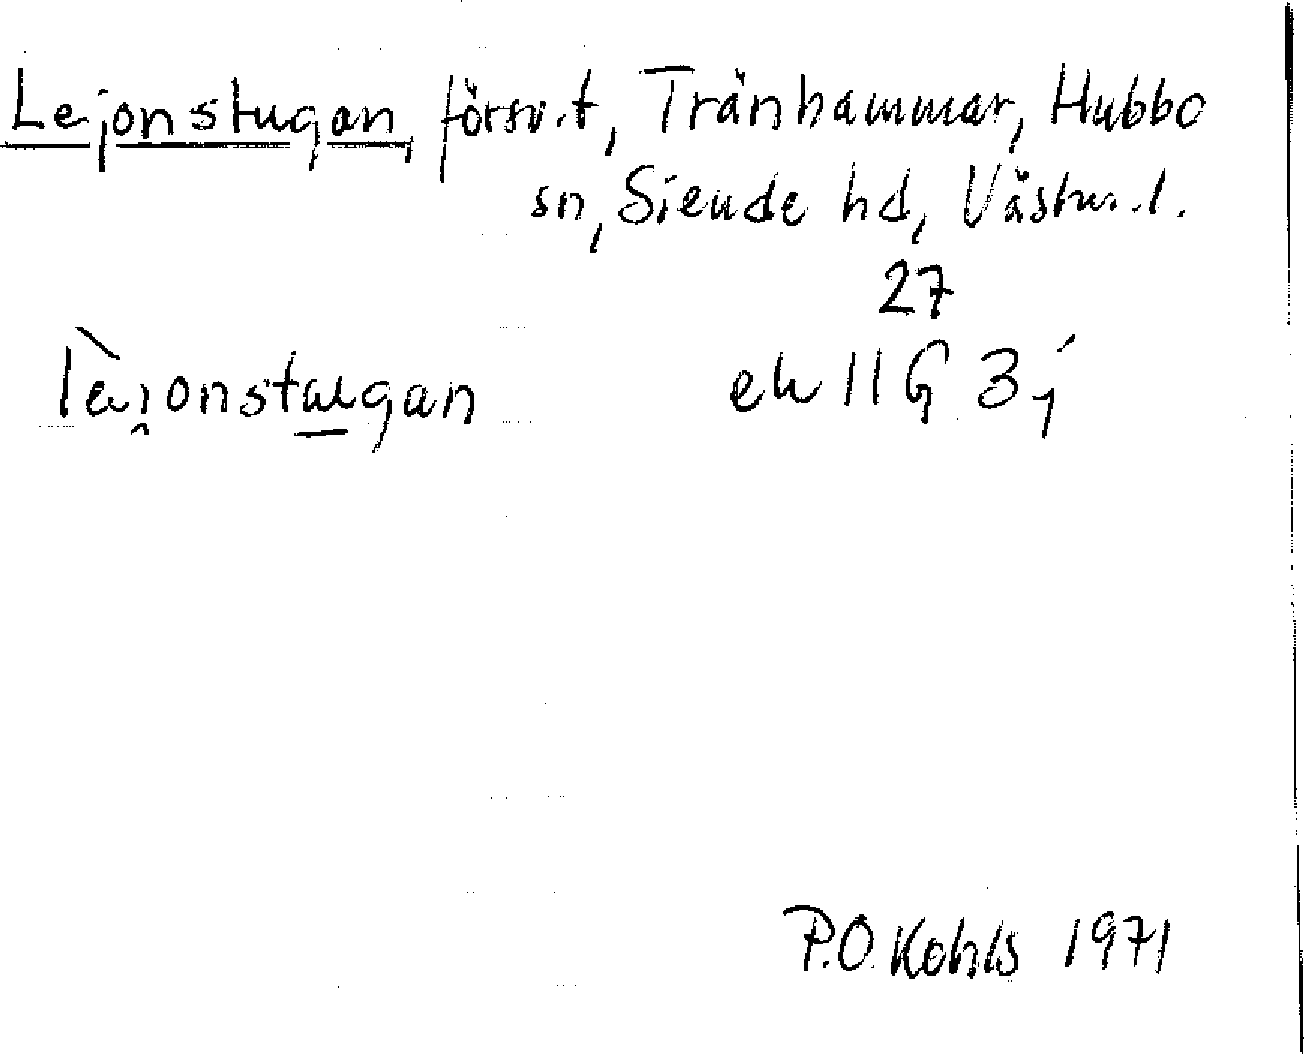 Lejonstugan, försv.t, Tränhammar, Hubbo
sn, Siende hd, Västm.l.
27
lèi̯onstugan ek 11G 3j
P.O. Kohls 1971